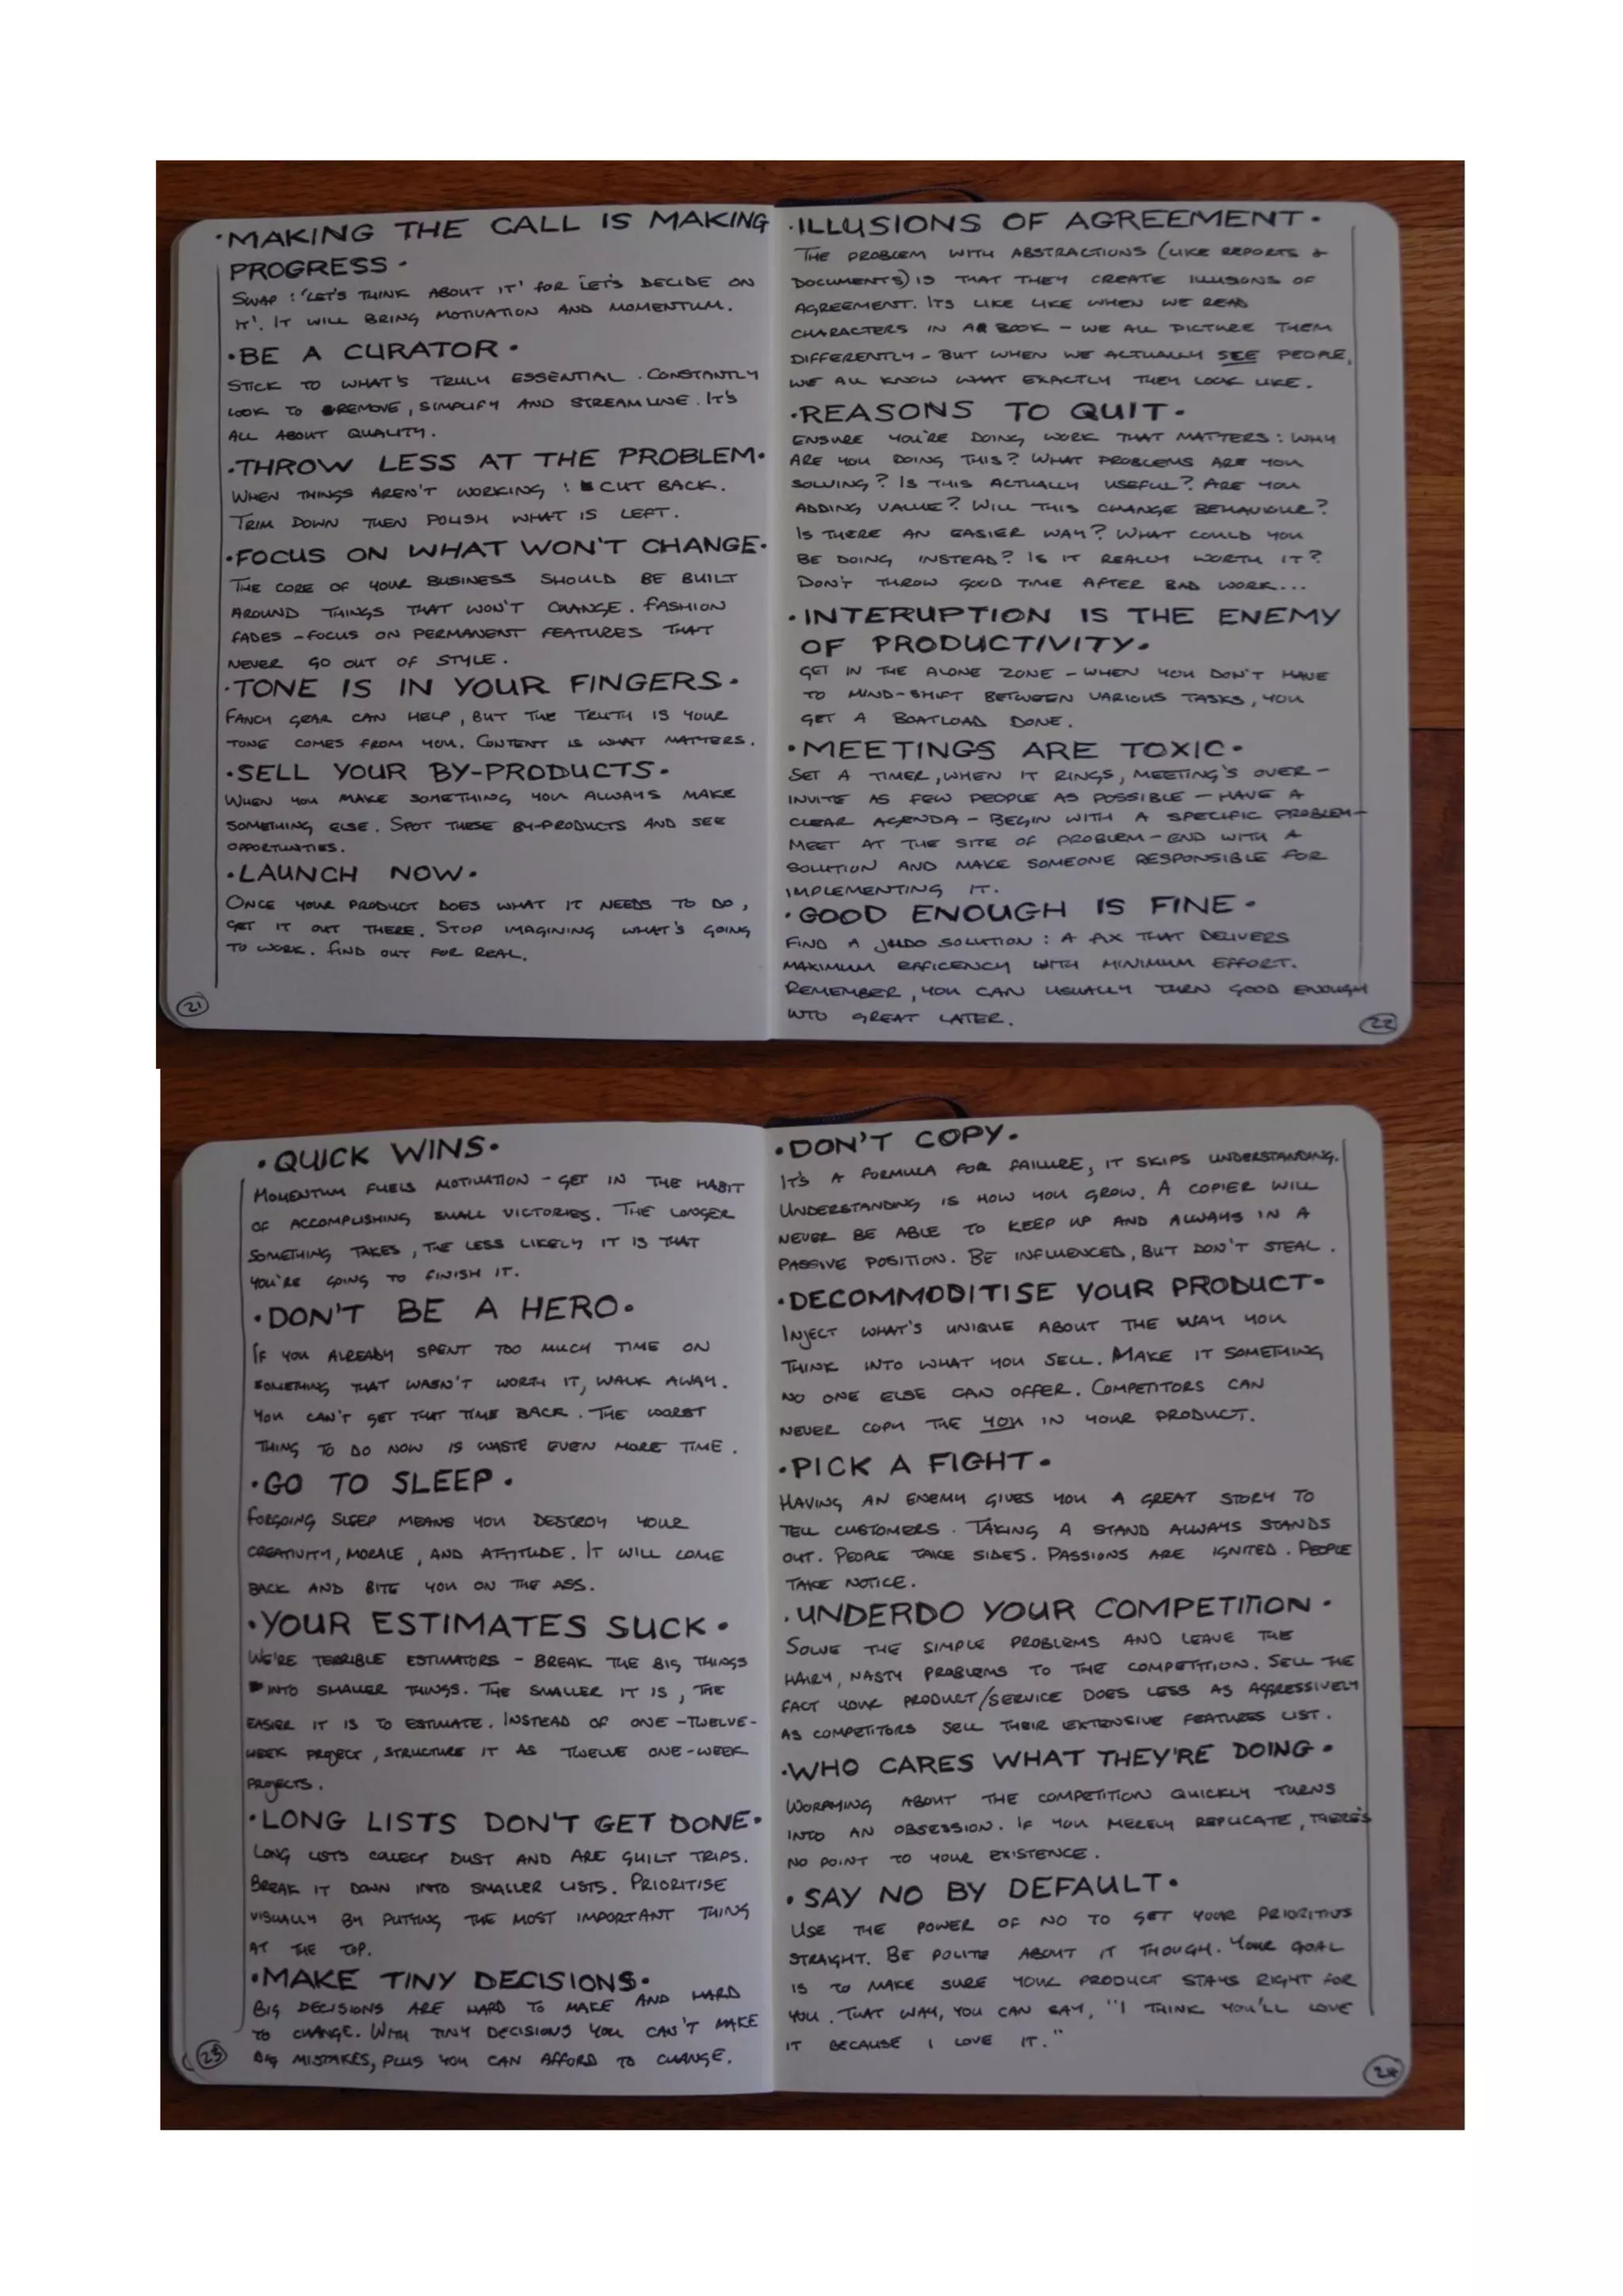 ·MAKING THE CALL IS MAKING
PROGRESS·
SWAP: 'LET'S THINK ABOUT IT' FOR LET'S DECIDE ON
IT'. IT WILL BRING MOTIVATION AND MOMENTUM.
·BE A CURATOR·
STICK TO WHAT'S TRULY ESSENTIAL. CONSTANTLY
LOOK TO REMOVE, SIMPLIFY AND STREAMLINE. IT'S
ALL ABOUT QUALITY.
·THROW LESS AT THE PROBLEM·
WHEN THINGS AREN'T WORKING: CUT BACK.
TRIM DOWN THEN POLISH WHAT IS LEFT.
·FOCUS ON WHAT WON'T CHANGE·
THE CORE OF YOUR BUSINESS SHOULD BE BUILT
AROUND THINGS THAT WON'T CHANGE. FASHION
FADES - FOCUS ON PERMANENT FEATURES THAT
NEVER GO OUT OF STYLE.
·TONE IS IN YOUR FINGERS·
FANCY GEAR CAN HELP, BUT THE TRUTH IS YOUR
TONE COMES FROM YOU. CONTENT IS WHAT MATTERS.
·SELL YOUR BY-PRODUCTS·
WHEN YOU MAKE SOMETHING YOU ALWAYS MAKE
SOMETHING ELSE. SPOT THESE BY-PRODUCTS AND SEE
OPPORTUNITIES.
·LAUNCH NOW·
ONCE YOUR PRODUCT DOES WHAT IT NEEDS TO DO,
GET IT OUT THERE. STOP IMAGINING WHAT'S GOING
TO WORK. FIND OUT FOR REAL.
21
·ILLUSIONS OF AGREEMENT·
THE PROBLEM WITH ABSTRACTIONS (LIKE REPORTS &
DOCUMENTS) IS THAT THEY CREATE ILLUSIONS OF
AGREEMENT. ITS LIKE LIKE WHEN WE READ
CHARACTERS IN A BOOK - WE ALL PICTURE THEM
DIFFERENTLY - BUT WHEN WE ACTUALLY SEE PEOPLE,
WE ALL KNOW WHAT EXACTLY THEY LOOK LIKE.
·REASONS TO QUIT·
ENSURE YOU'RE DOING WORK THAT MATTERS: WHY
ARE YOU DOING THIS? WHAT PROBLEMS ARE YOU
SOLVING? IS THIS ACTUALLY USEFUL? ARE YOU
ADDING VALUE? WILL THIS CHANGE BEHAVIOUR?
IS THERE AN EASIER WAY? WHAT COULD YOU
BE DOING INSTEAD? IS IT REALLY WORTH IT?
DON'T THROW GOOD TIME AFTER BAD WORK...
·INTERUPTION IS THE ENEMY
OF PRODUCTIVITY·
GET IN THE ALONE ZONE - WHEN YOU DON'T HAVE
TO MIND-SHIFT BETWEEN VARIOUS TASKS, YOU
GET A BOATLOAD DONE.
·MEETINGS ARE TOXIC·
SET A TIMER, WHEN IT RINGS, MEETING'S OVER -
INVITE AS FEW PEOPLE AS POSSIBLE - HAVE A
CLEAR AGENDA - BEGIN WITH A SPECIFIC PROBLEM -
MEET AT THE SITE OF PROBLEM - END WITH A
SOLUTION AND MAKE SOMEONE RESPONSIBLE FOR
IMPLEMENTING IT.
·GOOD ENOUGH IS FINE·
FIND A JUDO SOLUTION: A FIX THAT DELIVERS
MAXIMUM EFFICENCY WITH MINIMUM EFFORT.
REMEMBER, YOU CAN USUALLY TURN GOOD ENOUGH
INTO GREAT LATER.
22
·QUICK WINS·
MOMENTUM FUELS MOTIVATION - GET IN THE HABIT
OF ACCOMPLISHING SMALL VICTORIES. THE LONGER
SOMETHING TAKES, THE LESS LIKELY IT IS THAT
YOU'RE GOING TO FINISH IT.
·DON'T BE A HERO·
IF YOU ALREADY SPENT TOO MUCH TIME ON
SOMETHING THAT WASN'T WORTH IT, WALK AWAY.
YOU CAN'T GET THAT TIME BACK. THE WORST
THING TO DO NOW IS WASTE EVEN MORE TIME.
·GO TO SLEEP·
FORGOING SLEEP MEANS YOU DESTROY YOUR
CREATIVITY, MORALE, AND ATTITUDE. IT WILL COME
BACK AND BITE YOU ON THE ASS.
·YOUR ESTIMATES SUCK·
WE'RE TERRIBLE ESTIMATORS - BREAK THE BIG THINGS
INTO SMALLER THINGS. THE SMALLER IT IS, THE
EASIER IT IS TO ESTIMATE. INSTEAD OF ONE-TWELVE-
WEEK PROJECT, STRUCTURE IT AS TWELVE ONE-WEEK
PROJECTS.
·LONG LISTS DON'T GET DONE·
LONG LISTS COLLECT DUST AND ARE GUILT TRIPS.
BREAK IT DOWN INTO SMALLER LISTS. PRIORITISE
VISUALLY BY PUTTING THE MOST IMPORTANT THING
AT THE TOP.
·MAKE TINY DECISIONS·
BIG DECISIONS ARE HARD TO MAKE AND HARD
TO CHANGE. WITH TINY DECISIONS YOU CAN'T MAKE
BIG MISTAKES, PLUS YOU CAN AFFORD TO CHANGE.
23
·DON'T COPY·
IT'S A FORMULA FOR FAILURE, IT SKIPS UNDERSTANDING.
UNDERSTANDING IS HOW YOU GROW. A COPIER WILL
NEVER BE ABLE TO KEEP UP AND ALWAYS IN A
PASSIVE POSITION. BE INFLUENCED, BUT DON'T STEAL.
·DECOMMODITISE YOUR PRODUCT·
INJECT WHAT'S UNIQUE ABOUT THE WAY YOU
THINK INTO WHAT YOU SELL. MAKE IT SOMETHING
NO ONE ELSE CAN OFFER. COMPETITORS CAN
NEVER COPY THE YOU IN YOUR PRODUCT.
·PICK A FIGHT·
HAVING AN ENEMY GIVES YOU A GREAT STORY TO
TELL CUSTOMERS. TAKING A STAND ALWAYS STANDS
OUT. PEOPLE TAKE SIDES. PASSIONS ARE IGNITED. PEOPLE
TAKE NOTICE.
·UNDERDO YOUR COMPETITION·
SOLVE THE SIMPLE PROBLEMS AND LEAVE THE
HAIRY, NASTY PROBLEMS TO THE COMPETITION. SELL THE
FACT YOUR PRODUCT/SERVICE DOES LESS AS AGGRESSIVELY
AS COMPETITORS SELL THEIR EXTENSIVE FEATURES LIST.
·WHO CARES WHAT THEY'RE DOING·
WORRYING ABOUT THE COMPETITION QUICKLY TURNS
INTO AN OBSESSION. IF YOU MERELY REPLICATE, THERE'S
NO POINT TO YOUR EXISTENCE.
·SAY NO BY DEFAULT·
USE THE POWER OF NO TO GET YOUR PRIORITIES
STRAIGHT. BE POLITE ABOUT IT THOUGH. YOUR GOAL
IS TO MAKE SURE YOUR PRODUCT STAYS RIGHT FOR
YOU. THAT WAY, YOU CAN SAY, "I THINK YOU'LL LOVE
IT BECAUSE I LOVE IT."
24